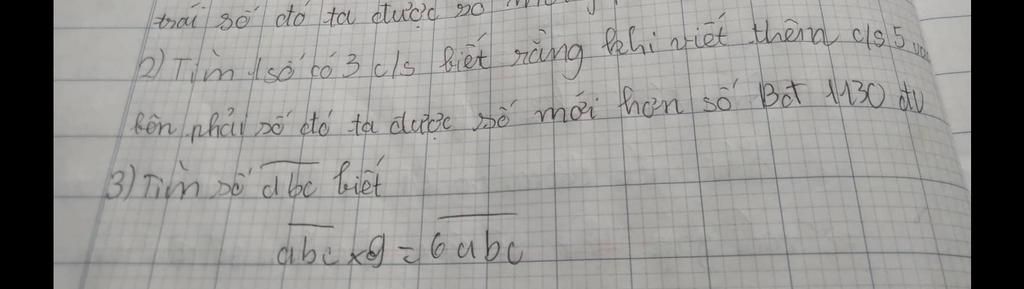 trái số đó ta được số
2) Tìm 1 số có 3 c/s biết rằng khi viết thêm c/s 5 vào
bên phải số đó ta được số mới hơn số Bđ 1130 đv
3) Tìm số abc biết
abc x 9 = 6abc